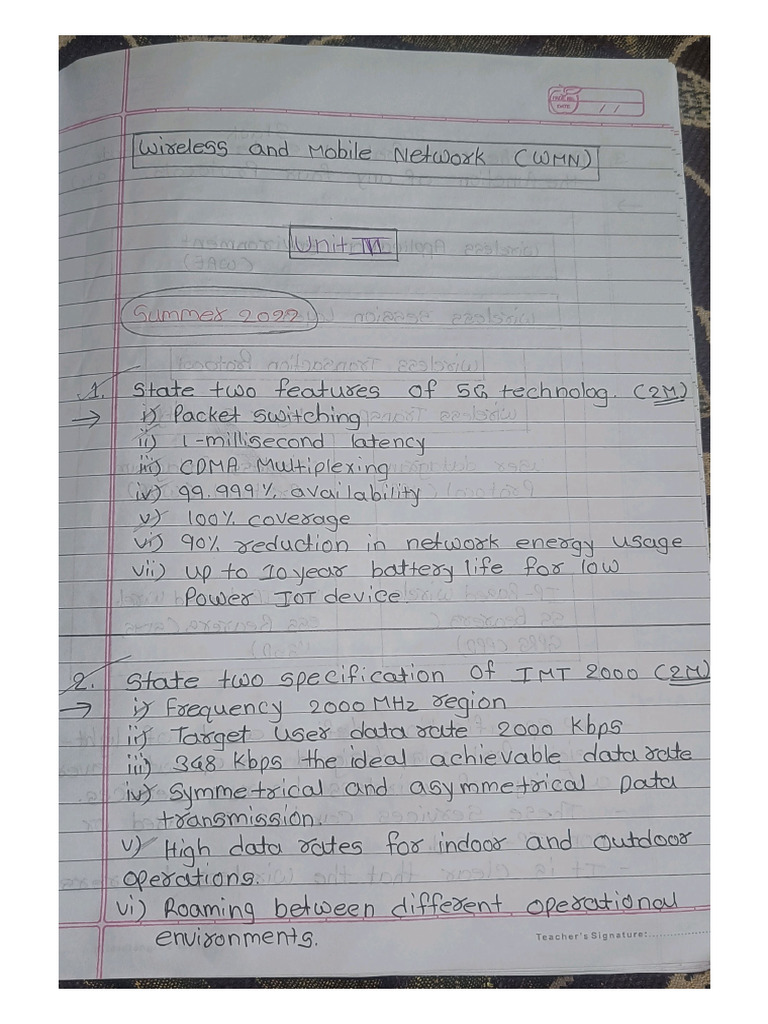 PAGE NO.
DATE / /
Wireless and Mobile Network (WMN)
Unit VI
Summer 2022
1. State two features of 5G technolog. (2M)
→ i) Packet switching
ii) 1-millisecond latency
iii) CDMA Multiplexing
iv) 99.999% availability
v) 100% coverage
vi) 90% reduction in network energy usage
vii) up to 10 year battery life for low
Power IOT device.
2. State two specification of IMT 2000 (2M)
→ i) Frequency 2000 MHz region
ii) Target user data rate 2000 kbps
iii) 348 kbps the ideal achievable data rate
iv) Symmetrical and asymmetrical Data
transmission.
v) High data rates for indoor and outdoor
operations.
vi) Roaming between different operational
environments.
Teacher's Signature: